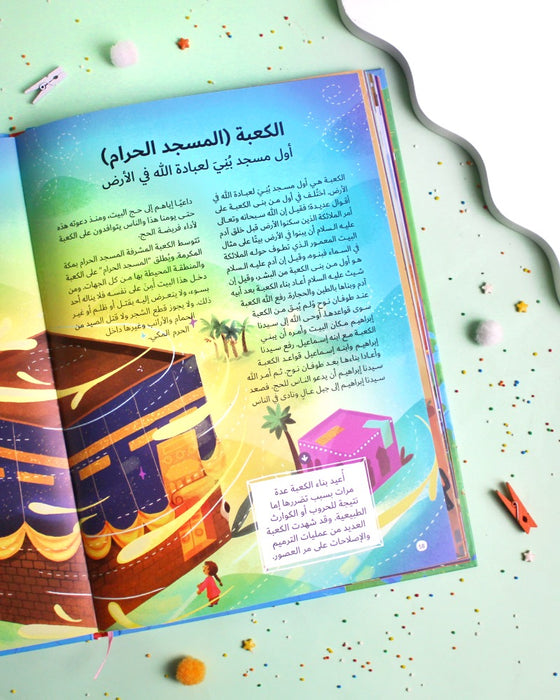 الكعبة (المسجد الحرام)
أول مسجد بُنِيَ لعبادة الله في الأرض
الكعبة هي أول مسجد بُنِيَ لعبادة الله في
الأرض. اختُلف في أول من بنى الكعبة على
أقوال عديدة؛ فقيل إن الله سبحانه وتعالى
أمر الملائكة الذين سكنوا الأرض قبل خلق آدم
عليه السلام أن يبنوا في الأرض بيتًا على مثال
البيت المعمور الذي تطوف حوله الملائكة
في السماء فبنوه. وقيل إن آدم عليه السلام
هو أول من بنى الكعبة من البشر، وقيل إن
شيث عليه السلام أعاد بناء الكعبة بعد أبيه
آدم وبناها بالطين والحجارة. رفع الله الكعبة
عند طوفان نوح ولم يُبقِ من الكعبة
سوى قواعدها. أوحى الله إلى سيدنا
إبراهيم مكان البيت وأمره أن يبني
الكعبة مع ابنه إسماعيل. رفع سيدنا
إبراهيم وابنه إسماعيل قواعد الكعبة
وأعادا بناءها بعد طوفان نوح. ثم أمر الله
سيدنا إبراهيم أن يدعو الناس للحج. فصعد
سيدنا إبراهيم إلى جبل عالٍ ونادى في الناس
داعيًا إياهم إلى حج البيت، ومنذ دعوته هذه
حتى يومنا هذا والناس يتوافدون على الكعبة
لأداء فريضة الحج.
تتوسط الكعبة المشرفة المسجد الحرام بمكة
المكرمة. ويُطلق "المسجد الحرام" على الكعبة
والمنطقة المحيطة بها من كل الجهات. ومن
دخل هذا البيت أَمِن على نفسه فلا يناله أحد
بسوء، ولا يتعرض إليه بقتل أو ظلم أو غير
ذلك. ولا يجوز قطع الشجر ولا قتل الصيد من
الحمام والأرانب وغيرها داخل
الحرم المكي.
أُعيد بناء الكعبة عدة
مرات بسبب تضررها إما
نتيجة للحروب أو الكوارث
الطبيعية. وقد شهدت الكعبة
العديد من عمليات الترميم
والإصلاحات على مر العصور.